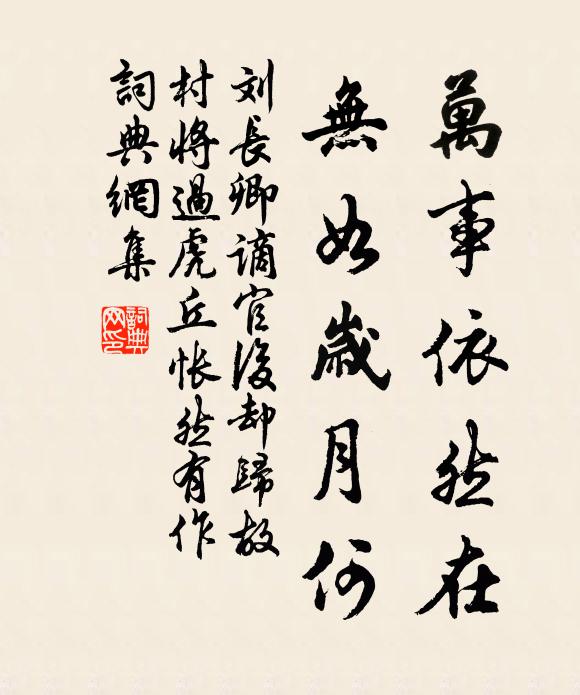 萬事依然在
無如歲月何
刘長卿謫官後却歸故
村將過虎丘悵然有作
詞典網集
詞典網印